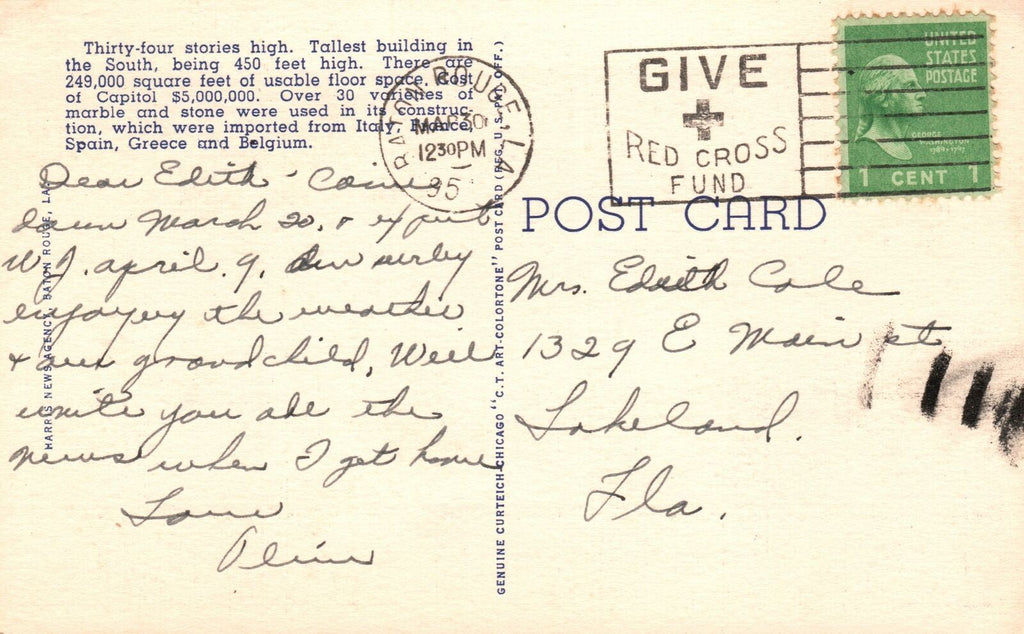 Thirty-four stories high. Tallest building in
the South, being 450 feet high. There are
249,000 square feet of usable floor space. Cost
of Capitol $5,000,000. Over 30 varieties of
marble and stone were used in its construc-
tion, which were imported from Italy, France,
Spain, Greece and Belgium.
Dear Edith - Came
down March 20, &
April 9,
enjoying the weather
& our grandchild, Will
write you all the
news when I get home
Love
HARRIS NEWS AGENCY, BATON ROUGE, LA.
GENUINE CURTEICH-CHICAGO "C.T. ART-COLORTONE" POST CARD (REG. U.S. PAT. OFF.)
BATON ROUGE, LA
MAR 30
12 30 PM
GIVE
RED CROSS
FUND
UNITED
STATES
POSTAGE
GEORGE
WASHINGTON
1789-1797
1 CENT 1
POST CARD
Mrs. Edith Cole
1329 E Main st
Lakeland.
Fla.